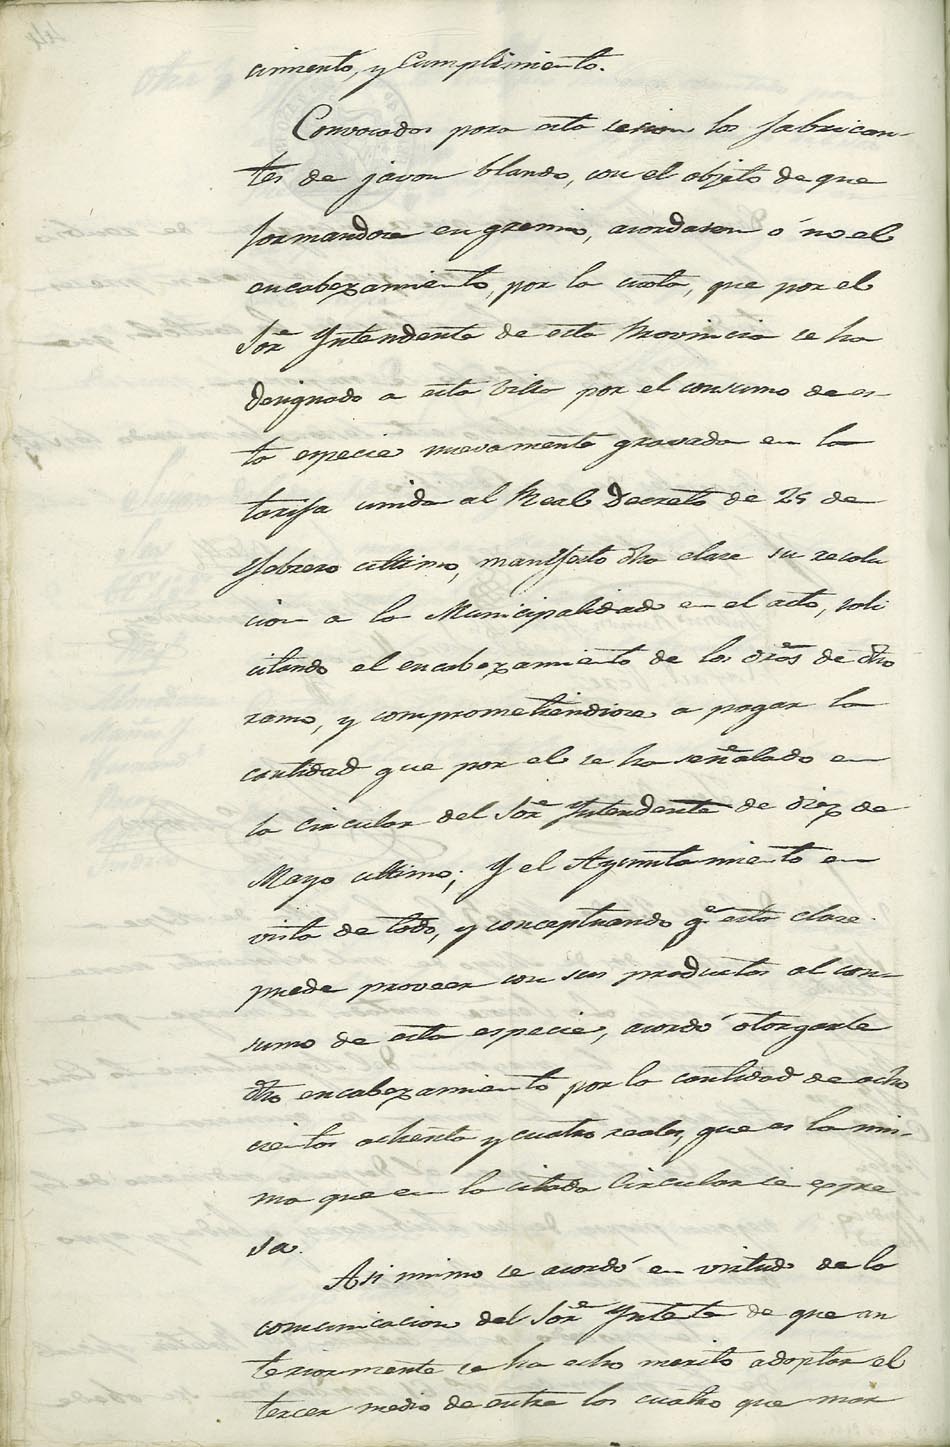 cimiento, y Cumplimiento.
Convocados para esta sesion los fabrican-
tes de javon blando, con el objeto de que
formandose en gremio, acordasen ó no el
encabezamiento, por la cuota, que por el
Sor. Yntendente de esta Provincia se ha
designado a esta Villa por el consumo de es-
ta especie nuevamente gravada en la
tarifa unida al Real Decreto de 25 de
Febrero ultimo, manifesto dha clase su resolu
cion a la Municipalidad en el acto, soli
citando el encabezamiento de los dros de dho
ramo, y comprometiendose a pagar la
cantidad que por el se ha señalado en
la circular del Sor. Yntendente de diez de
Mayo ultimo; Y el Ayuntamiento en
vista de todo, y conceptuando qe. esta clase
puede proveer con sus productos al con-
sumo de esta especie, acordó otorgarle
dho encabezamiento por la cantidad de ocho
cientos ochenta y cuatro reales, que es la mis-
ma que en la citada Circular se espre
sa.
Asi mismo se acordó en virtud de la
comunicacion del Sor. Yntete de que an
teriormente se ha echo merito adoptar el
tercer medio de entre los cuatro que mar